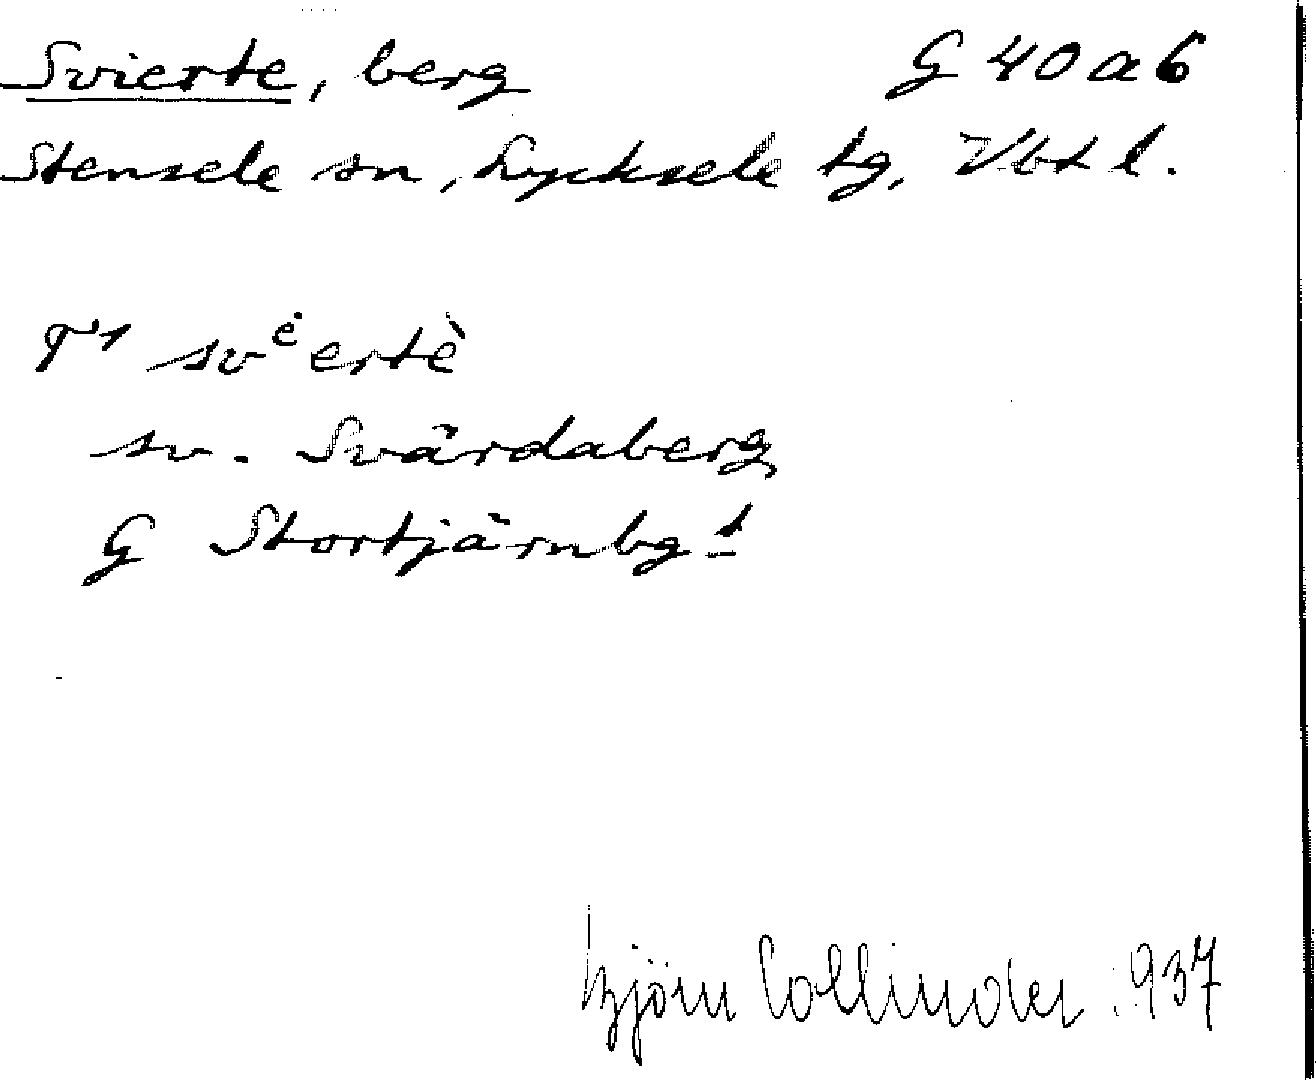 Svierte, berg G 40 a 6
Stensele sn, Lycksele tg, Vbt l.
T1 svėertè
sv. Svärdaberg
G Stortjärnbgt
Björn Collinder 1937